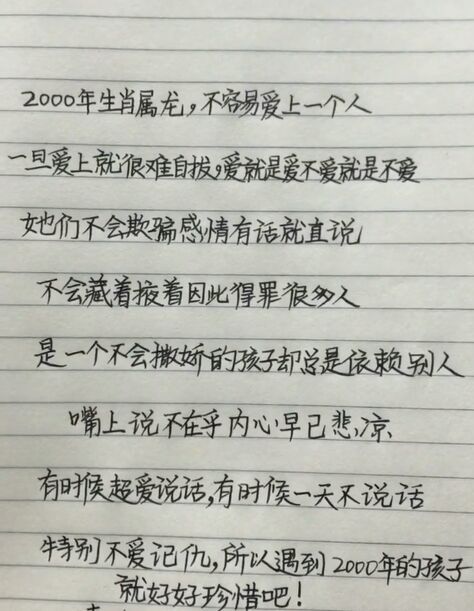 2000年生肖属龙，不容易爱上一个人
一旦爱上就很难自拔，爱就是爱不爱就是不爱
她们不会欺骗感情有话就直说
不会藏着掖着因此得罪很多人
是一个不会撒娇的孩子却总是依赖别人
嘴上说不在乎内心早已悲凉
有时候超爱说话，有时候一天不说话
特别不爱记仇，所以遇到2000年的孩子
就好好珍惜吧！